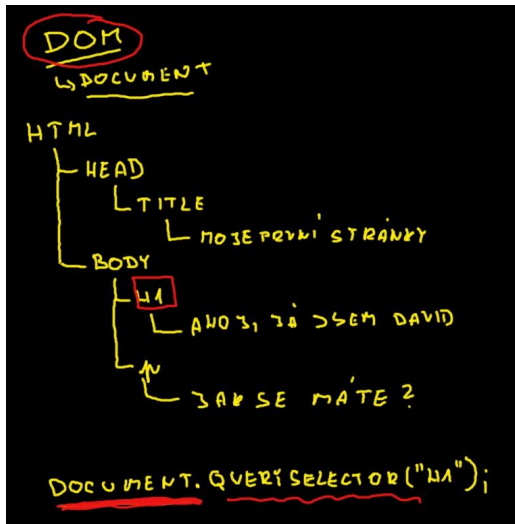 DOM
↳ DOCUMENT
HTML
HEAD
TITLE
MOJE PRVNÍ STRÁNKY
BODY
H1
AHOJ, JÁ JSEM DAVID
p
JAK SE MÁTE ?
DOCUMENT. QUERYSELECTOR("H1");